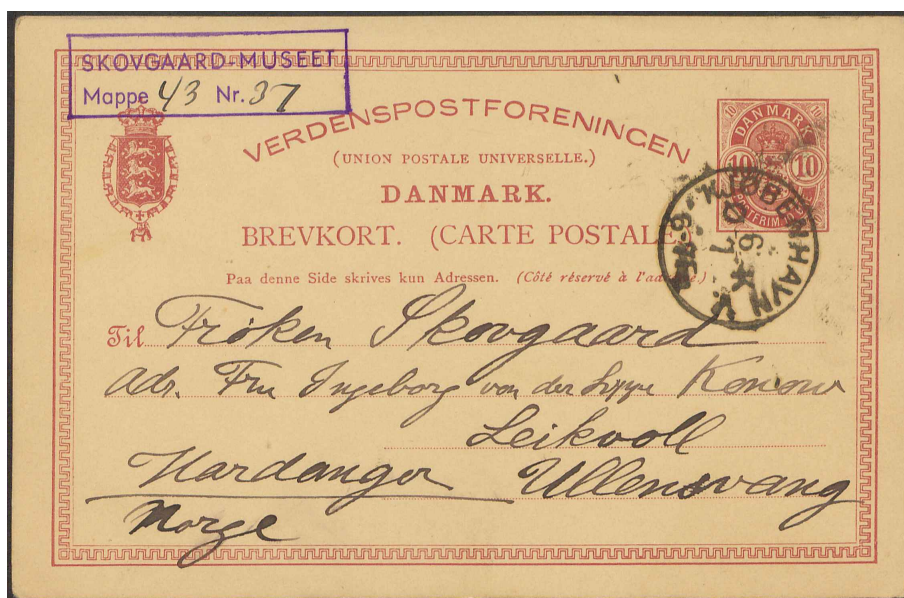 SKOVGAARD-MUSEET
Mappe 43 Nr. 37
VERDENSPOSTFORENINGEN
(UNION POSTALE UNIVERSELLE.)
DANMARK.
BREVKORT. (CARTE POSTAL
Paa denne Side skrives kun Adressen. (Côté réservé à l'ad
DANMARK
10 10
KJØBENHAVN V.
Til Frøken Skovgaard
Adr. Fru Ingeborg von der Lippe Konow
Leikvoll
Hardanger Ullensvang
Norge